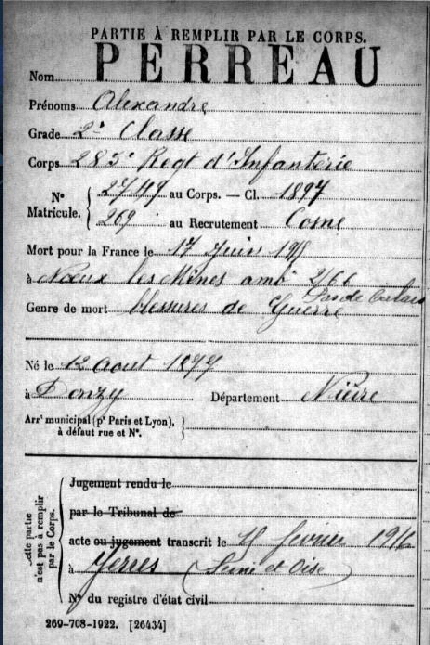 PARTIE À REMPLIR PAR LE CORPS.
Nom PERREAU
Prénoms Alexandre
Grade 2e Classe
Corps 285e Regt d'Infanterie
N° Matricule. 27417 au Corps. — Cl. 1897
269 au Recrutement Cosne
Mort pour la France le 17 Juin 1915
à Nœux les Mines amb 2/66
Pas de Calais
Genre de mort blessures de Guerre
Né le 12 août 1877
à Donzy Département Nièvre
Arrt municipal (pr Paris et Lyon).
à défaut rue et N°.
Cette partie n'est pas à remplir par le Corps.
Jugement rendu le
par le Tribunal de
acte ou jugement transcrit le février 1916
à Yerres (Seine et Oise)
N° du registre d'état civil
269-708-1922. [26434]